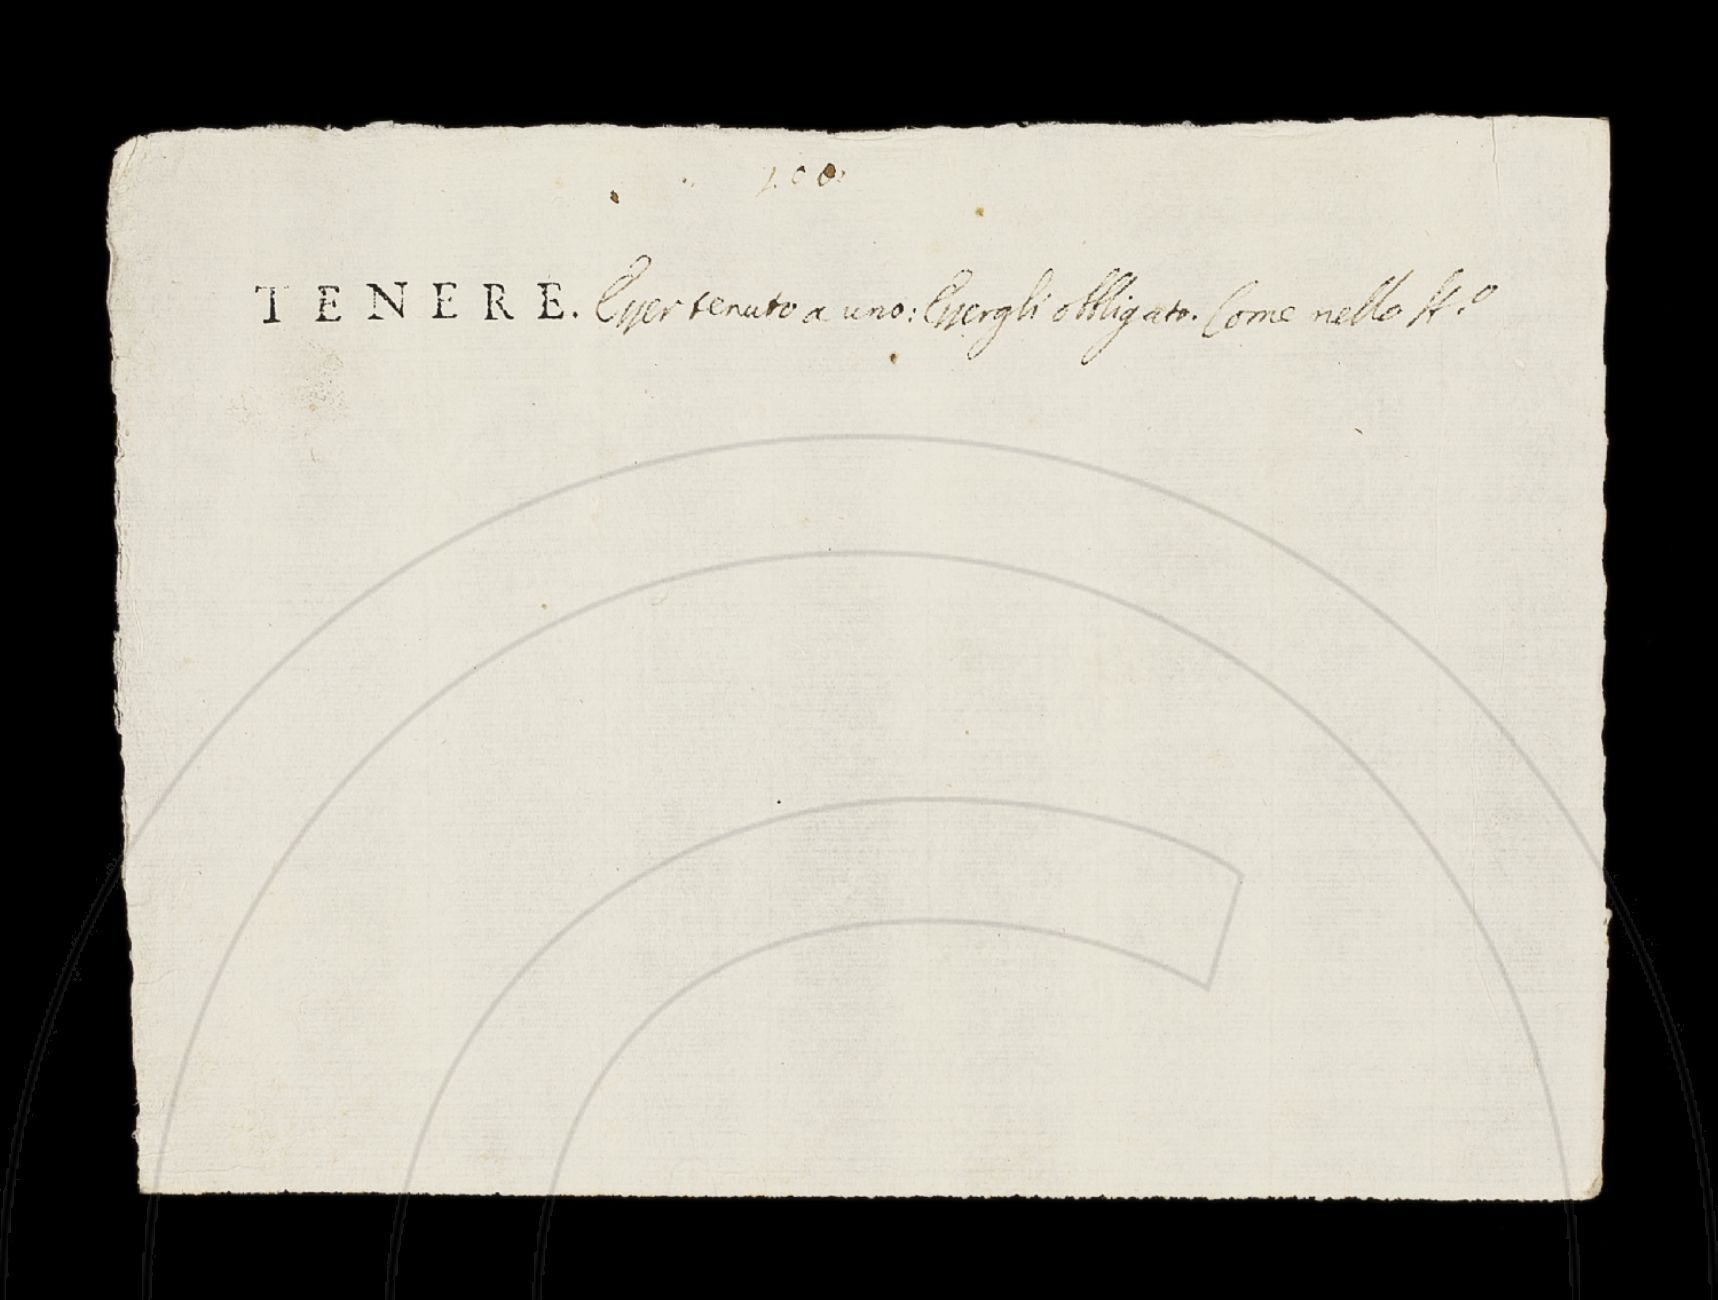 200.
TENERE. Esser tenuto a uno: Essergli obbligato. Come nello st.º